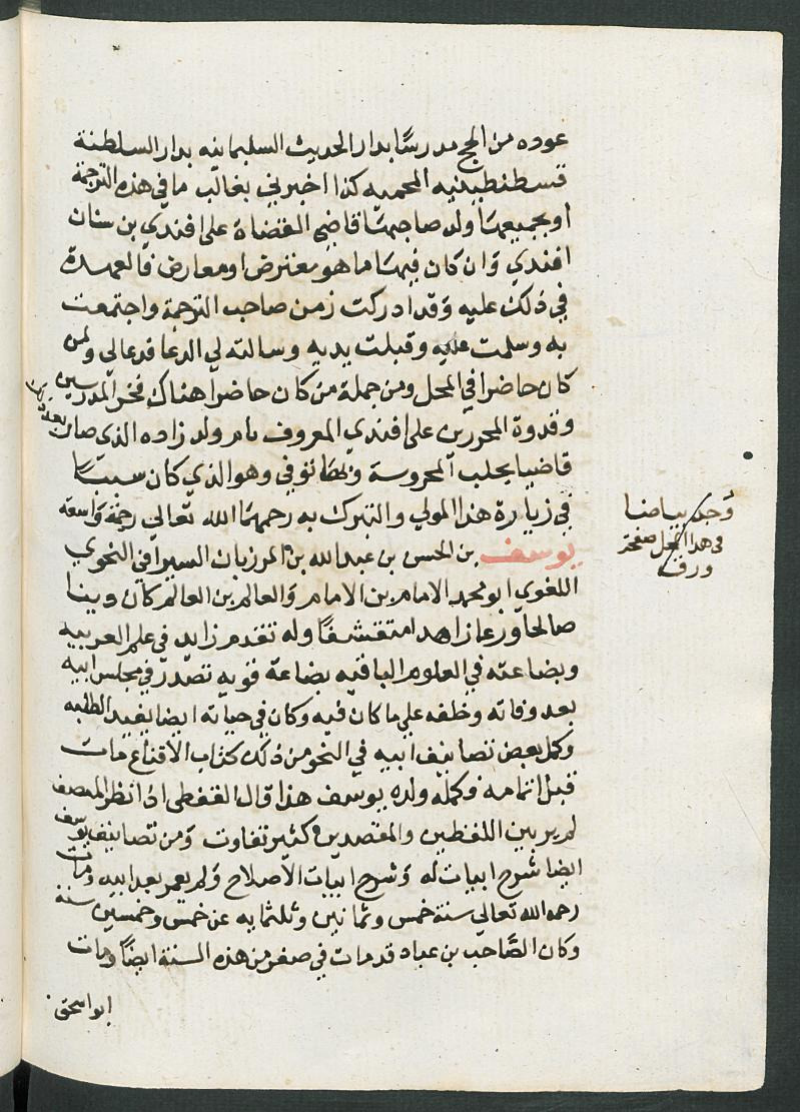 عوده من الحج مدرسًا بدار الحديث السليمانيه بدار السلطنة
قسطنطينيه المحميه كذا اخبرني بغالب ما في هذه الترجمة
او بجميعها ولد صاحبها قاضي القضاة علي افندي بن سنان
افندي وان كان فيها ما هو معترض او معارض فالعهدة
في ذلك عليه وقد ادركت زمن صاحب الترجمة واجتمعت
به وسلمت عليه وقبلت يديه وسالته لي الدعا فدعا لي ولمن
كان حاضرا في المحل ومن جملة من كان حاضرا هناك فخر المدرسين
وقدوة المحررين علي افندي المعروف بام ولد زاده الذي صار بعد ذلك
قاضيا بحلب المحروسة وبها توفي وهو الذي كان سببًا
في زيارة هذا المولي والتبرك به رحمهما الله تعالي رحمة واسعة
يوسف بن الحسن بن عبد الله بن المرزبان السيرافي النحوي
اللغوي ابو محمد الامام بن الامام والعالم بن العالم كان دينا
صالحا ورعا زاهدا متقشفًا وله تقدم زايد في علم العربيه
وبضاعته في العلوم الباقيه بضاعة قويه تصدر في مجلس ابيه
بعد وفاته وخلفه علي ما كان فيه وكان في حياته ايضا يفيد الطلبه
وكمل بعض تصانيف ابيه في النحو من ذلك كتاب الاقناع مات
قبل اتمامه وكمله ولده يوسف هذا قال القفطي اذا نظر المنصف
لم ير بين اللفظين والمقصدين كثير تفاوت ومن تصانيف يوسف
ايضا شرح ابيات له وشرح ابيات الاصلاح ولم يعمر بعد ابيه ومات
رحمه الله تعالي سنة خمس وثمانين وثلثمايه عن خمس وخمسين سنة
وكان الصَّاحب بن عباد قد مات في صفر من هذه السنة ايضًا ومات
ابو اسحق
وجد بياضا
في هذا المحل صفحة
ورق